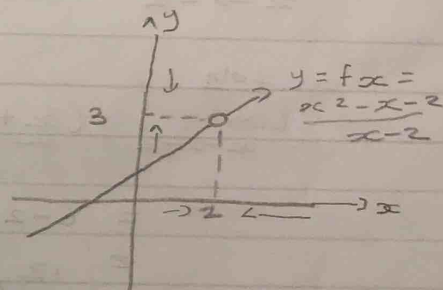 y
y = fx =
x² - x - 2
x - 2
3
2
x